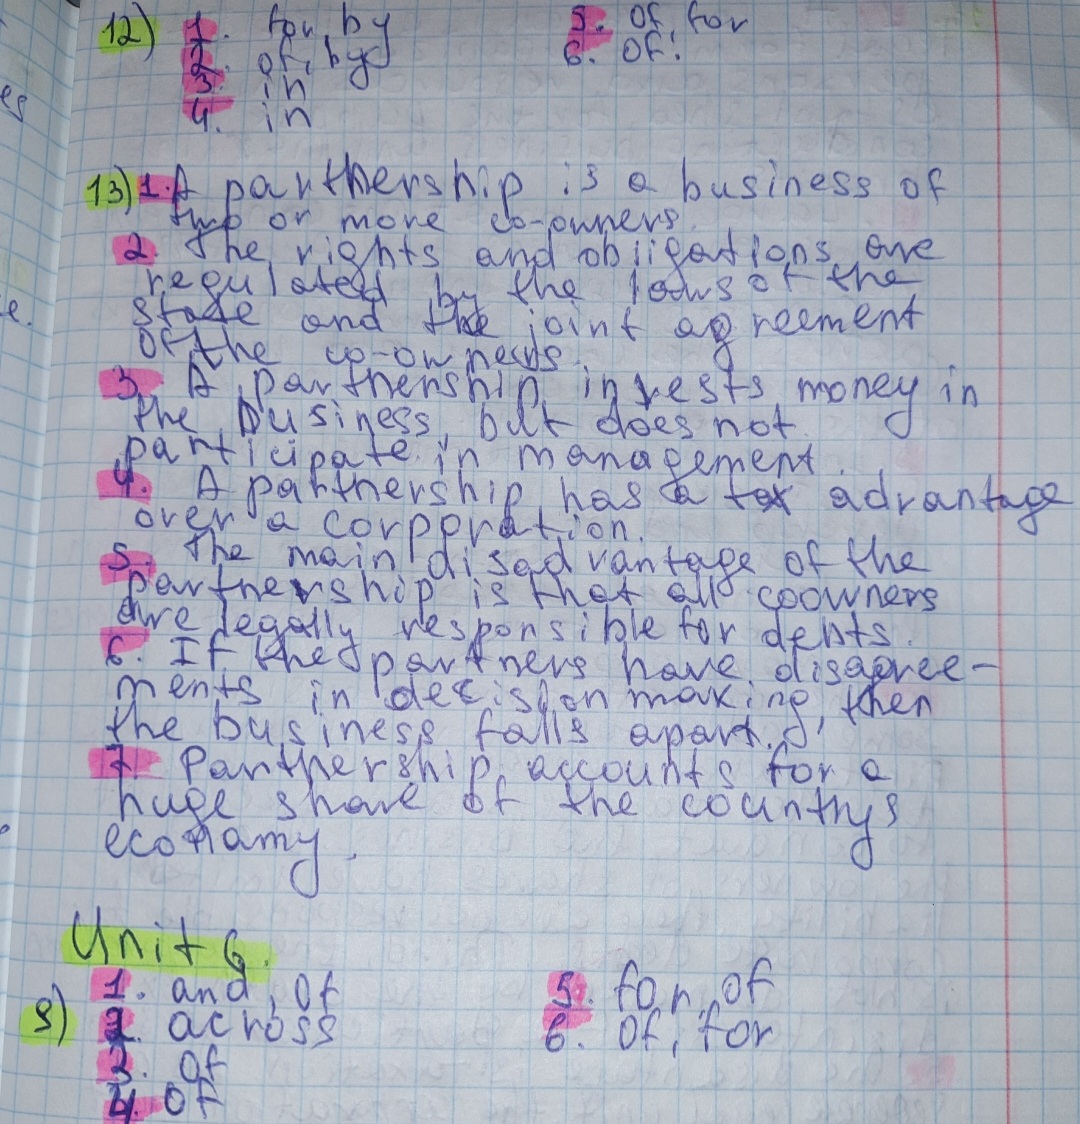 12) 1. for, by
2. of, by
3. in
4. in
5. of, for
6. of.
es
e.
13) 1. A partnership is a business of
two or more co-owners.
2. The rights and obligations are
regulated by the laws of the
state and the joint agreement
of the co-owners.
3. A partnership invests money in
the business, but does not
participate in management.
4. A partnership has a tax advantage
over a corporation.
5. The main disadvantage of the
partnership is that all coowners
are legally responsible for dents.
6. If the partners have disagree-
ments in decision making, then
the business falls apart.
7. Partnership accounts for a
huge share of the countrys
economy.
Unit 6.
9) 1. and, of
2. across
3. of
4. of
5. for, of
6. of, for